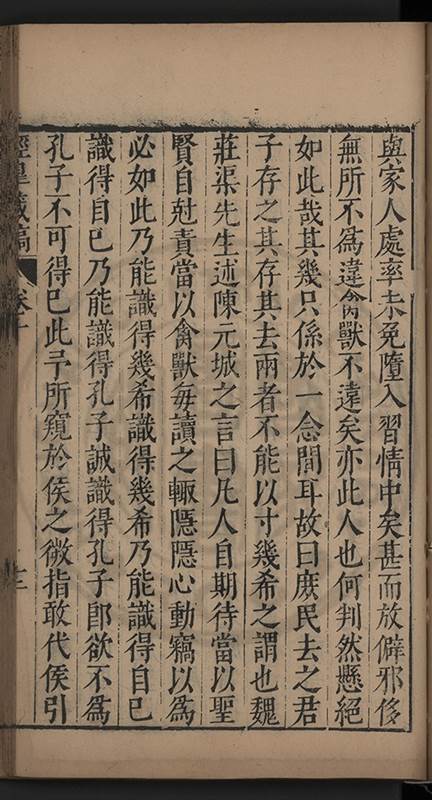 與家人處率未免墮入習情中矣甚而放僻邪侈
無所不爲違禽獸不遠矣亦此人也何判然懸絕
如此哉其幾只係於一念間耳故曰庶民去之君
子存之其存其去兩者不能以寸幾希之謂也魏
莊渠先生述陳元城之言曰凡人自期待當以聖
賢自尅責當以禽獸每讀之輙隱隱心動竊以爲
必如此乃能識得幾希識得幾希乃能識得自已
識得自已乃能識得孔子誠識得孔子卽欲不爲
孔子不可得已此予所窺於侯之微指敢代侯引
涇臯藏稿 卷十